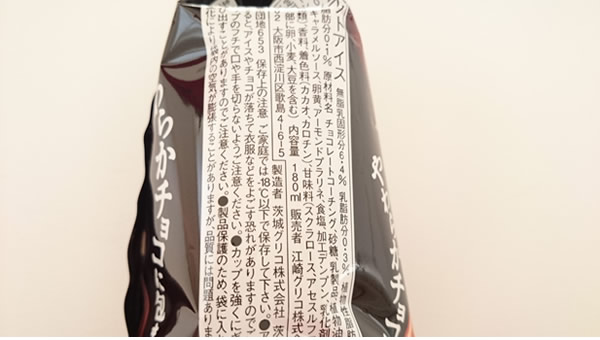 やわらかチョコ
ントアイス 無脂乳固形分6.4% 乳脂肪分0.3% 植物性脂肪
脂肪分0.1% 原材料名 チョコレートコーチング、砂糖、乳製品、植物油
キャラメルソース、卵黄、アーモンドプラリネ、食塩、加工デンプン、乳化剤
類)、香料、着色料(カカオ、カロチン)、甘味料(スクラロース、アセスルフ
部に卵、小麦、大豆を含む) 内容量 180ml 販売者 江崎グリコ株式
2 大阪市西淀川区歌島4-6-5 製造者 茨城グリコ株式会社 茨
団地653 保存上の注意 ご家庭では-18℃以下で保存して下さい。●ア
ると、アイスやチョコが落ちて衣服などをよごす恐れがありますのでご
プのフチで口や手を切らないようご注意ください。●カップを強くにぎ
び出すことがありますのでご注意ください。●製品保護のため、袋に入れ
化により袋内の空気が膨張することがありますが、品質には問題ありま
わらかチョコに包ま